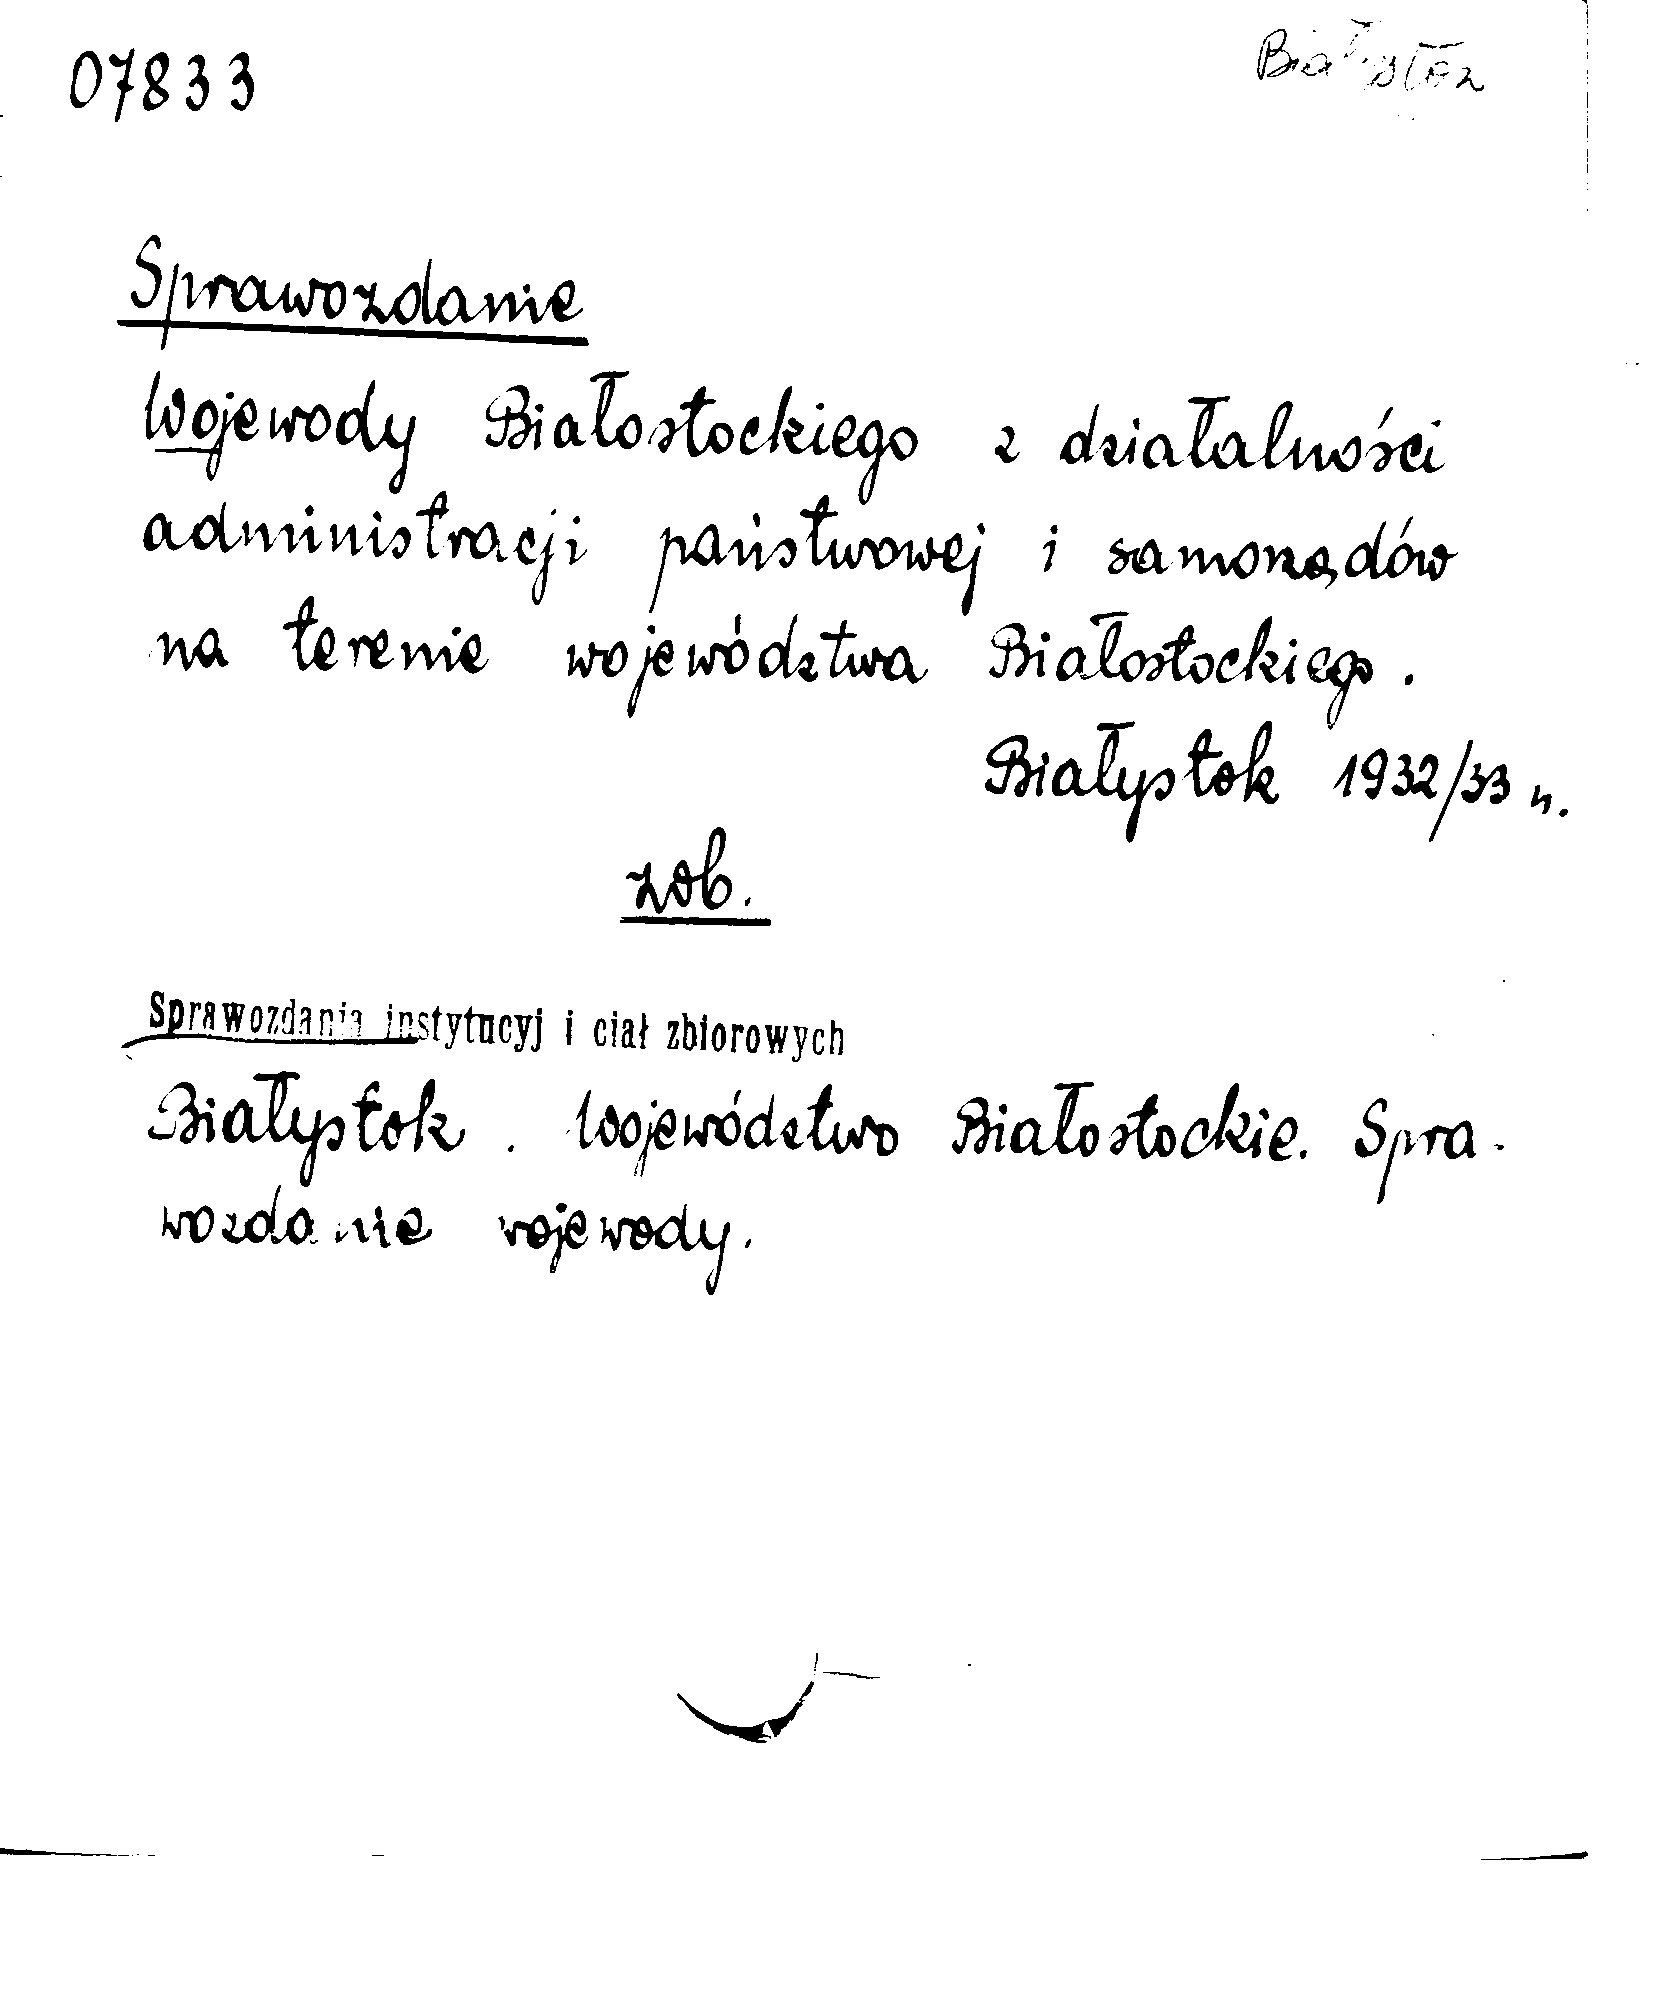 07833
Białystok
Sprawozdanie
Wojewody Białostockiego z działalności
administracji państwowej i samorządów
na terenie województwa Białostockiego.
Białystok 1932/33 n.
zob.
Sprawozdania instytucyj i ciał zbiorowych
Białystok. Województwo Białostockie. Spra-
wozdanie wojewody.